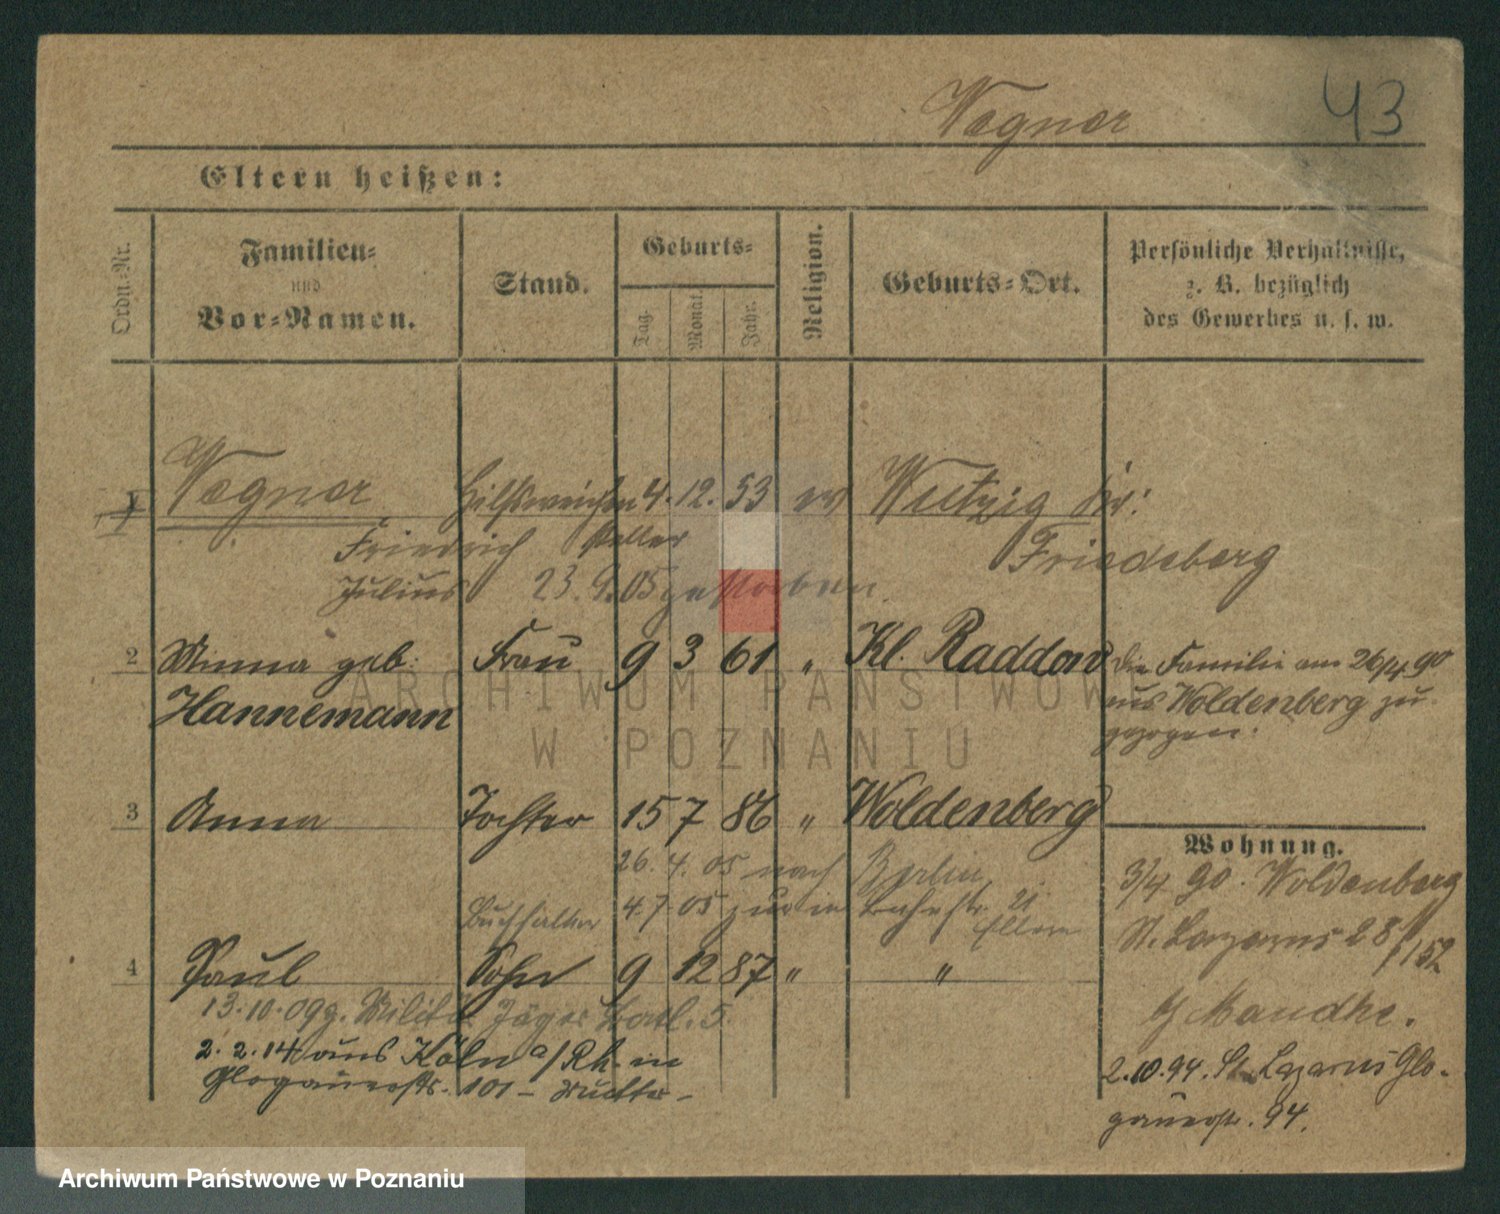 Wegner 43
Eltern heißen:
Ordn.-Nr.
Familien-
und
Vor-Namen.
Stand.
Geburts-
Tag.
Monat.
Jahr.
Religion.
Geburts-Ort.
Persönliche Verhältnisse,
z. B. bezüglich
des Gewerbes u. s. w.
1 Wegner Hilfsweichen 4. 12. 53 ev Wutzig Kr:
Friedrich steller Friedeberg
Julius 23. 9. 05 gestorben
2 Minna geb. Frau 9 3 61 " Kl. Raddow
Hannemann
die Familie am 26/4 90
aus Woldenberg zu
gezogen.
3 Anna Tochter 15 7 86 " Woldenberg
26. 4. 05 nach Berlin,
Buchhalter 4. 7. 05 zur in 21
Eltern
4 Paul Sohn 9 12 87 " "
13. 10. 09 z. Militär Jäger Batl. 5.
2. 2. 14 aus Köln a/Rh. in
Glogauerstr. 101 - Mutter -
Wohnung.
3/4 90. Woldenberg
St. Lazarus 28 /152
b/ Mandke.
2. 10. 94. St. Lazarus Glo-
gauerstr. 94.
ARCHIWUM PAŃSTWOWE
W POZNANIU
Archiwum Państwowe w Poznaniu